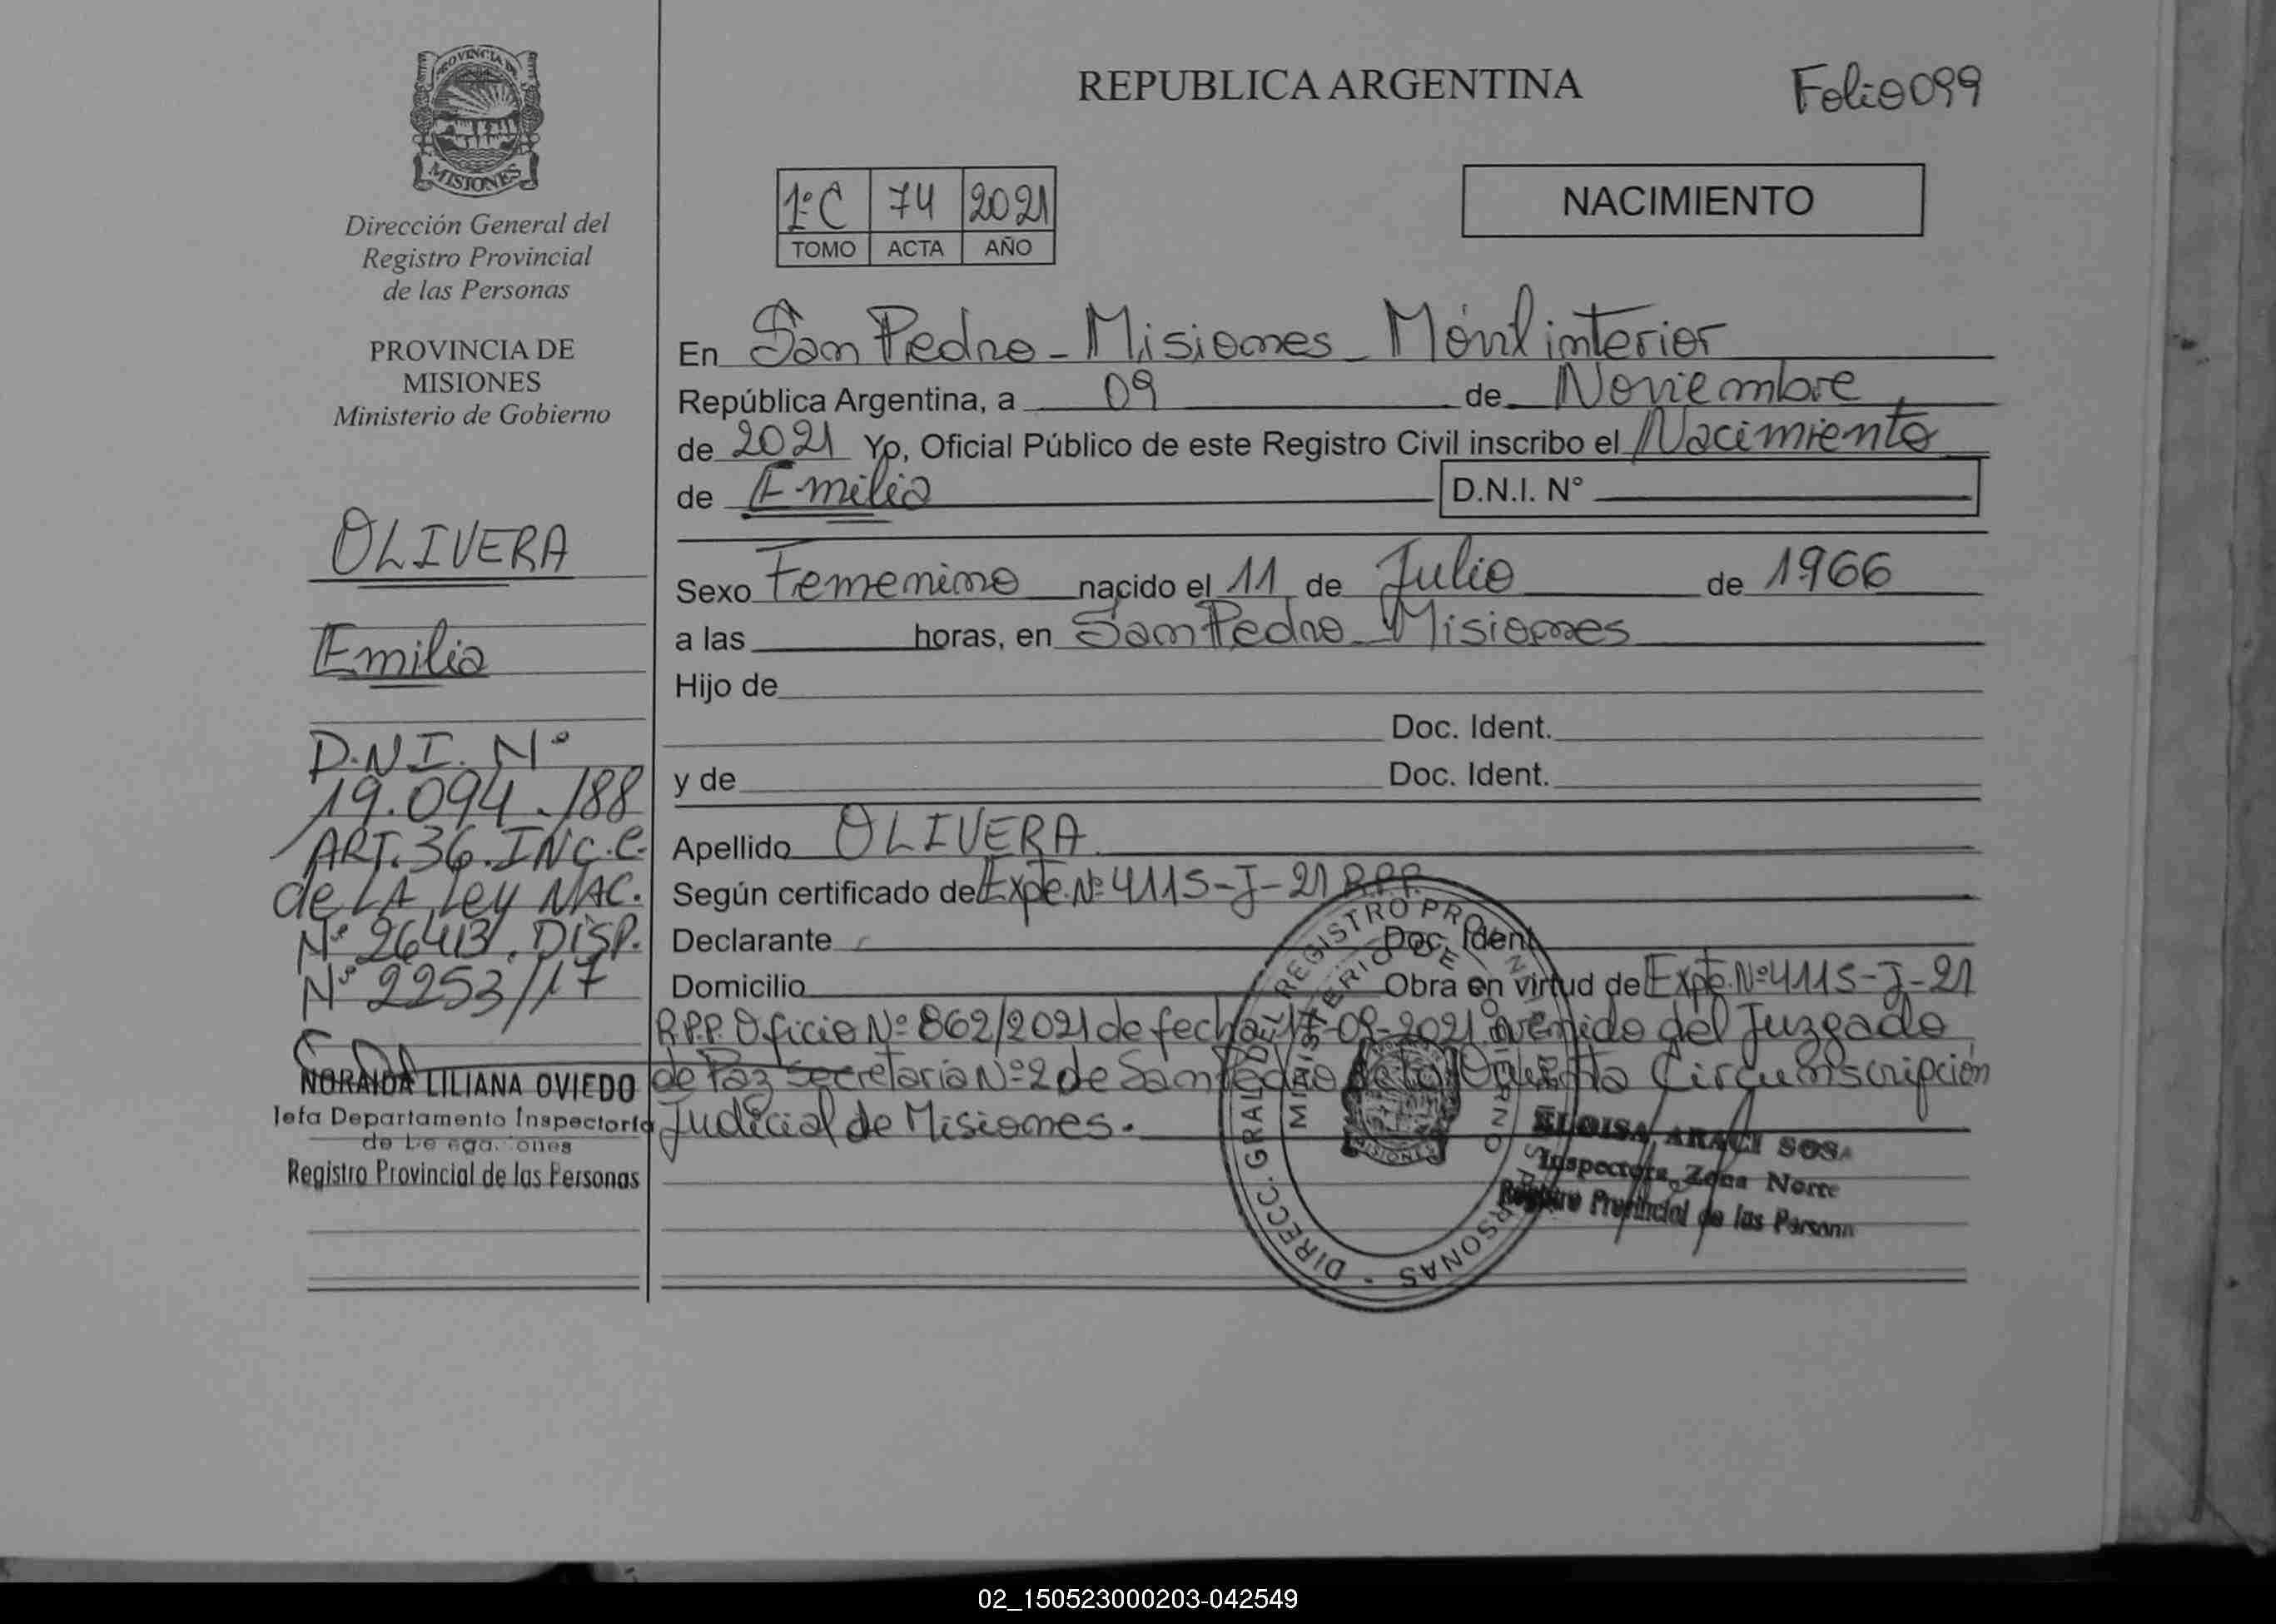 PROVINCIA DE
MISIONES
Dirección General del
Registro Provincial
de las Personas
PROVINCIA DE
MISIONES
Ministerio de Gobierno
OLIVERA
Emilia
D.N.I. Nº
19.094.188
ART. 36. INC. C.
de LA Ley NAC.
Nº 26413. DISP.
Nº 2253/17
NORAIDA LILIANA OVIEDO
Jefa Departamento Inspectoría
Registro Provincial de las Personas
REPUBLICA ARGENTINA
Folio 099
1º C 74 2021
TOMO ACTA AÑO
NACIMIENTO
En San Pedro - Misiones - Móvil interior
República Argentina, a 09 de Noviembre
de 2021 Yo, Oficial Público de este Registro Civil inscribo el Nacimiento
de Emilia D.N.I. N°
Sexo Femenino nacido el 11 de Julio de 1966
a las horas, en San Pedro - Misiones
Hijo de
Doc. Ident.
y de Doc. Ident.
Apellido OLIVERA
Según certificado de Expte. Nº 4115-J-21 R.P.P.
Declarante Doc. Ident
Domicilio Obra en virtud de Expte. Nº 4115-J-21
R.P.P. Oficio Nº 862/2021 de fecha 17-09-2021 venido del Juzgado
de Paz Secretaria Nº 2 de San Pedro de la Cuarta Circunscripción
Judicial de Misiones.
DIRECC. GRAL. DEL REGISTRO PERSONAS
MINISTERIO DE
MISIONES
ELOISA ARACI SOSA
Inspectora Zona Norte
Registro Provincial de las Persona
02_150523000203-042549